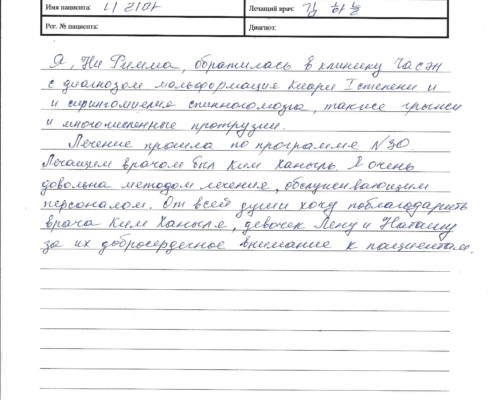 Имя пациента: 니 리마 Лечащий врач: 김 하늘
Рег. № пациента: Диагноз:
Я, Ни Римма, обратилась в клинику Часэн
с диагнозом мальформация Киари I степени и
и сирингомиелия спинного мозга, также грыжи
и многочисленные протрузии.
Лечение прошла по программе N30
Лечащем врачом был Ким Ханыль. Я очень
довольна методом лечение, обслуживающим
персоналом. От всей души хочу поблагодарить
врача Ким Ханыля, девочек Лену и Наташу
за их добросердечное внимание к пациентам.